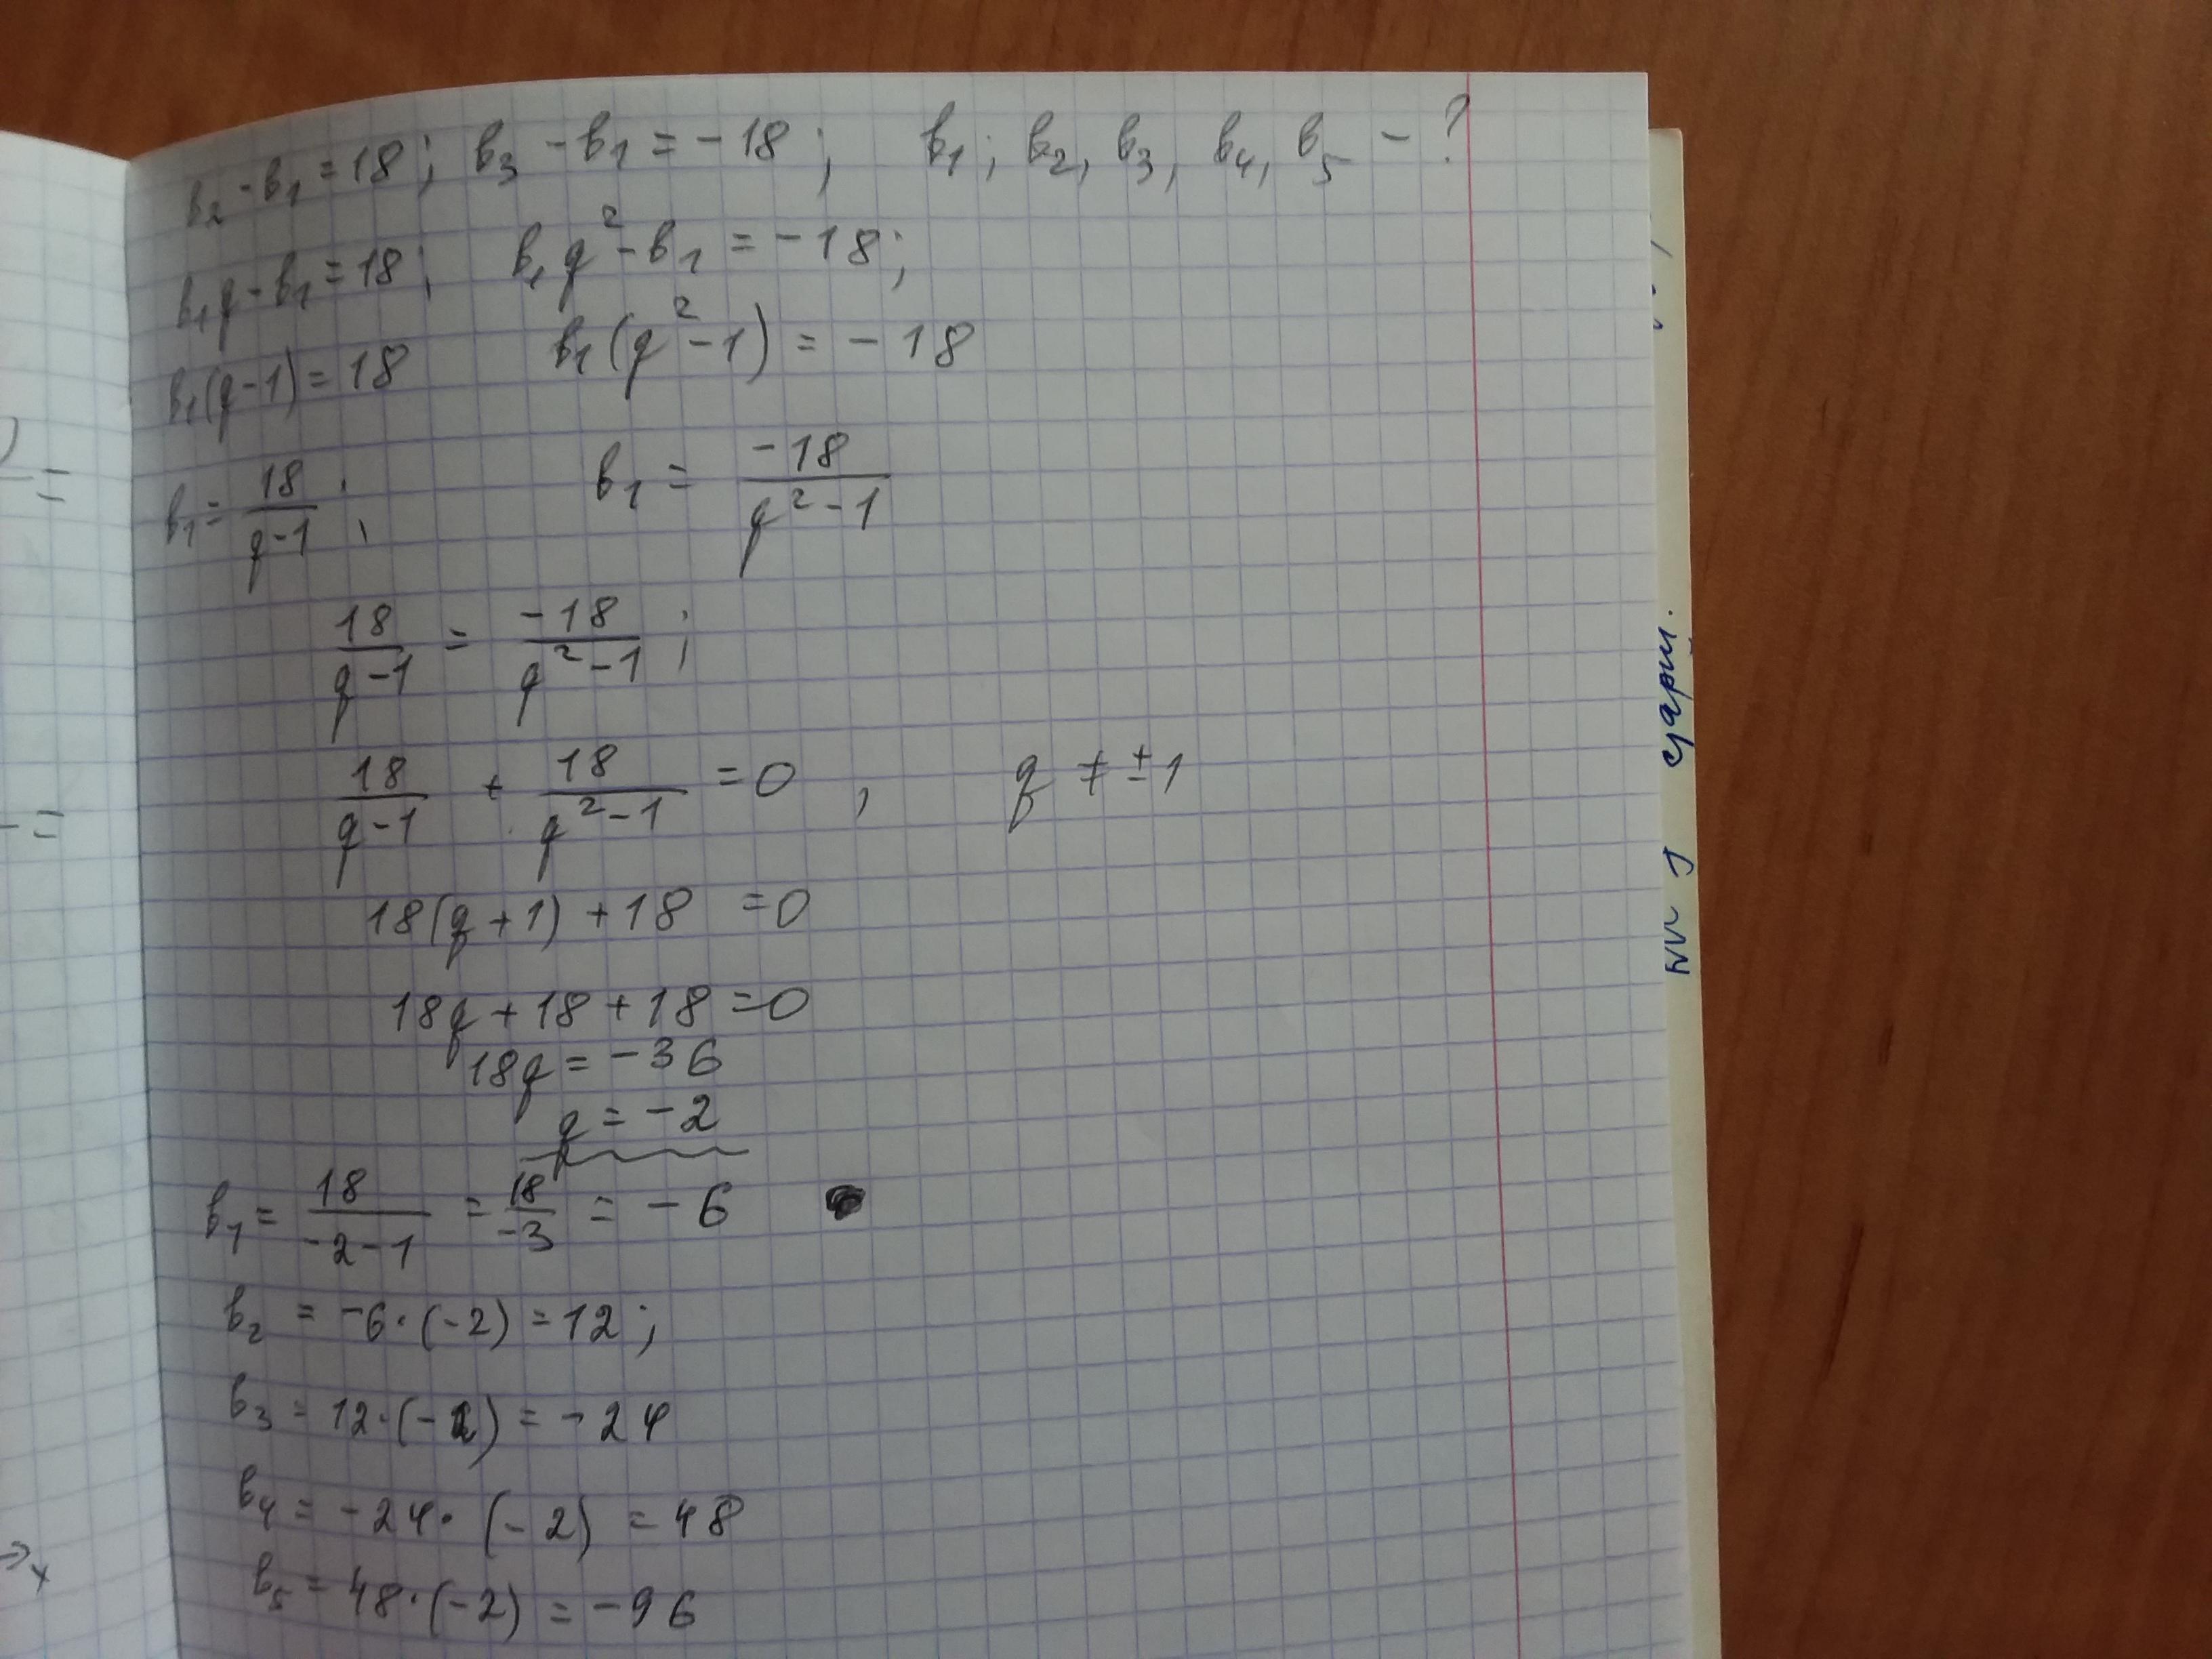 b₂ - b₁ = 18; b₃ - b₁ = -18; b₁; b₂, b₃, b₄, b₅ - ?
b₁q - b₁ = 18; b₁q² - b₁ = -18;
b₁(q-1) = 18 b₁(q²-1) = -18
b₁ = 18/(q-1); b₁ = -18/(q²-1)
18/(q-1) = -18/(q²-1);
18/(q-1) + 18/(q²-1) = 0, q ≠ ±1
18(q+1) + 18 = 0
18q + 18 + 18 = 0
18q = -36
q = -2
b₁ = 18/(-2-1) = 18/-3 = -6
b₂ = -6·(-2) = 12;
b₃ = 12·(-2) = -24
b₄ = -24·(-2) = 48
b₅ = 48·(-2) = -96